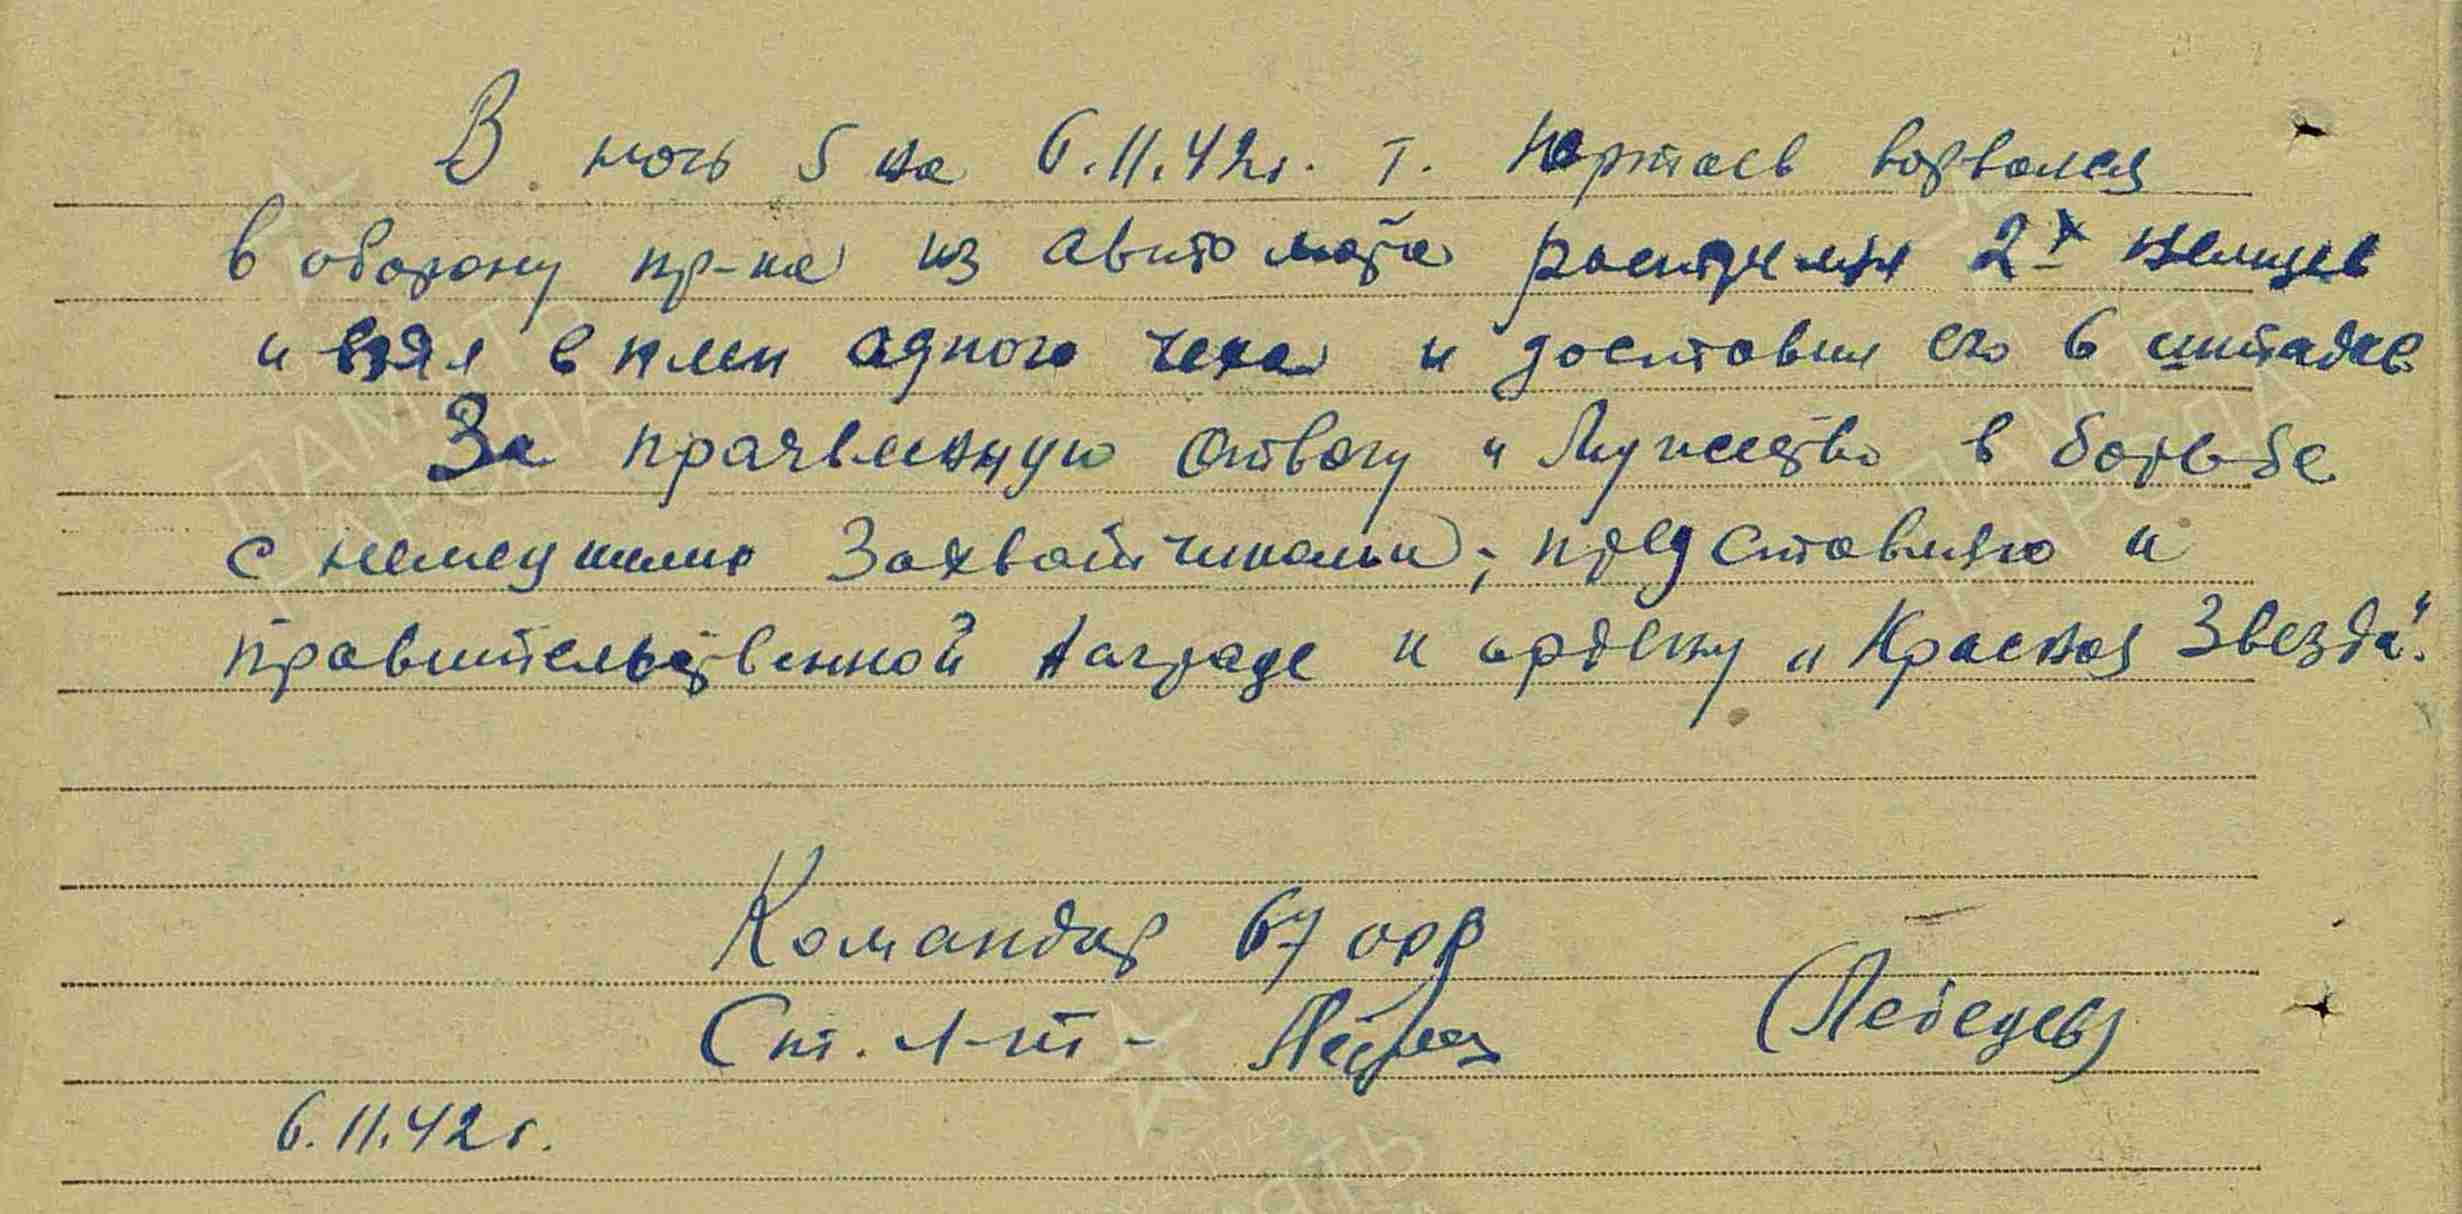 В ночь 5 на 6.11.42г. т. Нартаев ворвался
в оборону пр-ка из автомата растрелял 2х немцев
и взял в плен одного чеха и доставил его в штадив
За проявленную отвагу и Мужество в борьбе
с немецкими Захватчиками, представляю к
правительственной награде к ордену "Красная Звезда".
Командир 67 орр
Ст. л-т - (Лебедев)
6.11.42г.
ПАМЯТЬ НАРОДА
ПАМЯТЬ НАРОДА